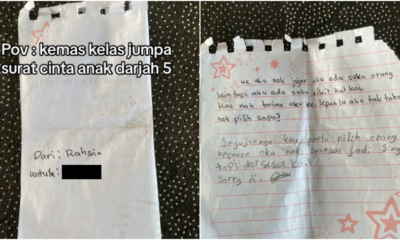 Pov : kemas kelas jumpa
surat cinta anak darjah 5
Dari : Rahsia
untuk :
we aku nak jujur aku ada suka orang
lain tapi aku ada suku sikit kat kau.
kau nak terima aku ke, lepas tu aku tak tahu
nak pilih sapa?
Sejujurnya kau perlu pilih orang
pertama aku nak
tapi
Sorry